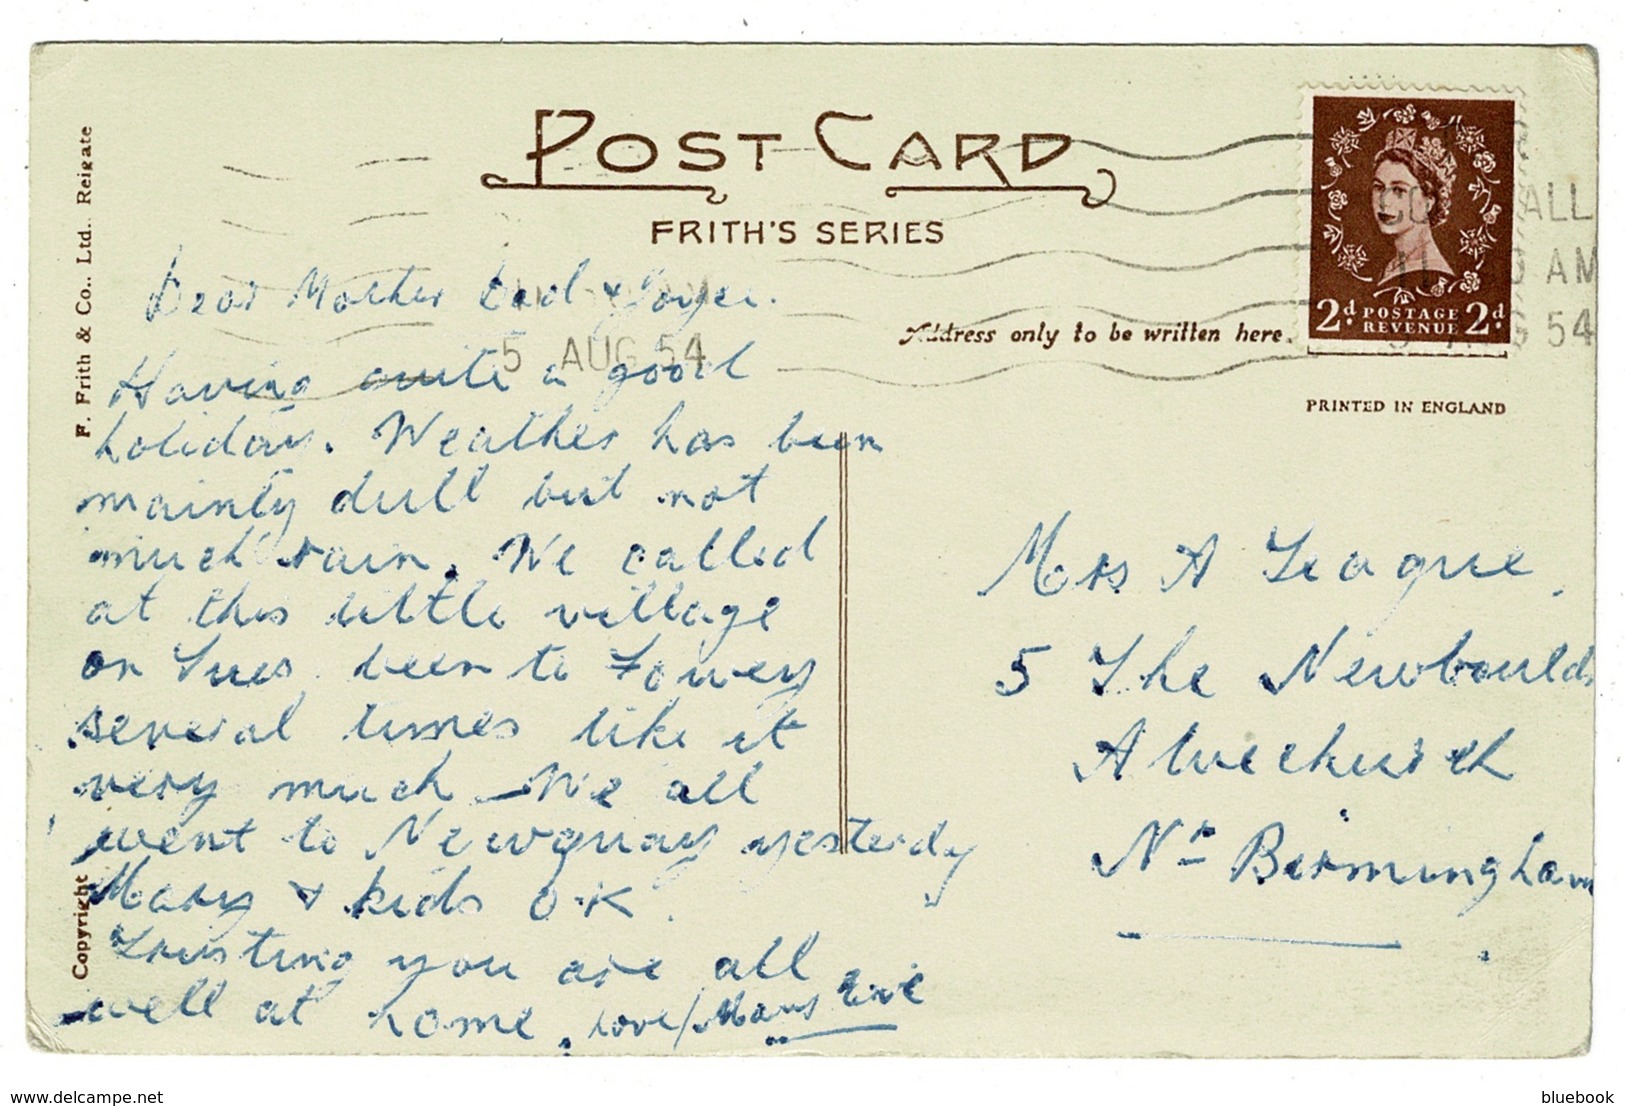 POST CARD
FRITH'S SERIES
F. Frith & Co., Ltd., Reigate
Copyright
Address only to be written here.
PRINTED IN ENGLAND
2d POSTAGE REVENUE 2d
ALL
AM
G 54
5 AUG 54
Dear Mother Dad & Joyce.
Having quite a good
holiday. Weather has been
mainly dull but not
much rain. We called
at this little village
on Tues, been to Fowey
several times like it
very much. We all
went to Newquay yesterdy
Mary & kids O.K.
Trusting you are all
well at home. love/Mary Eric
Mrs A Teague,
5 The Newboulds
Alvechurch
Nr Birmingham
delcampe.net
bluebook